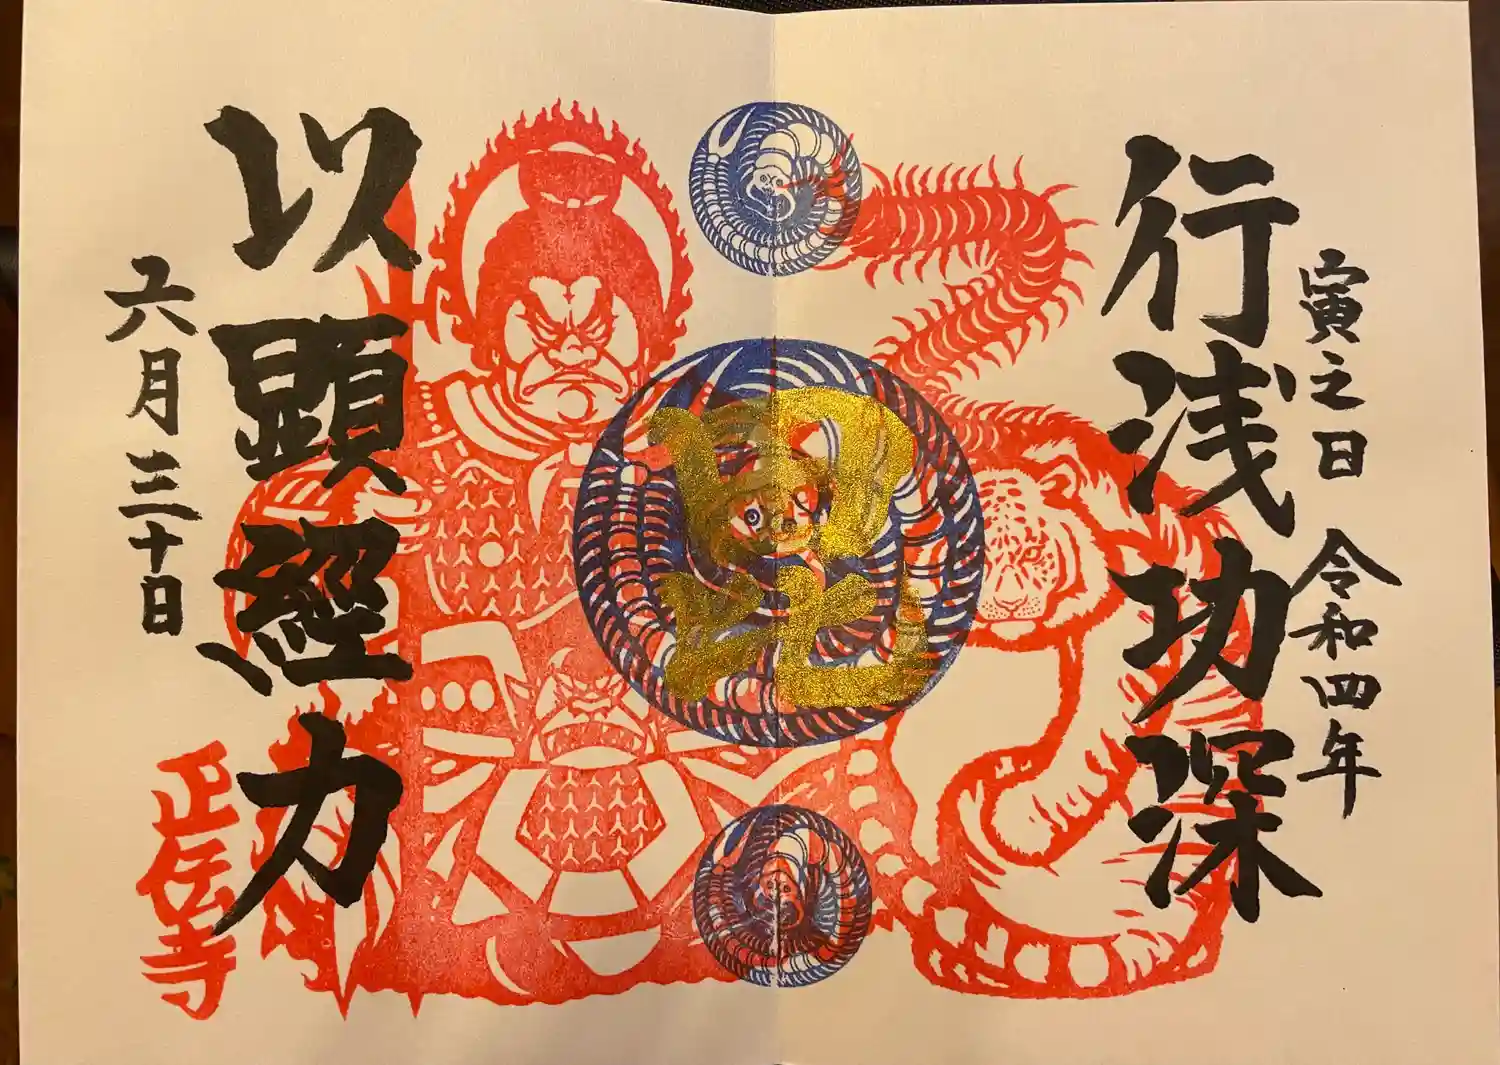 寅之日 令和四年
行浅功深
毘
以顕經力
六月三十日
正伝寺